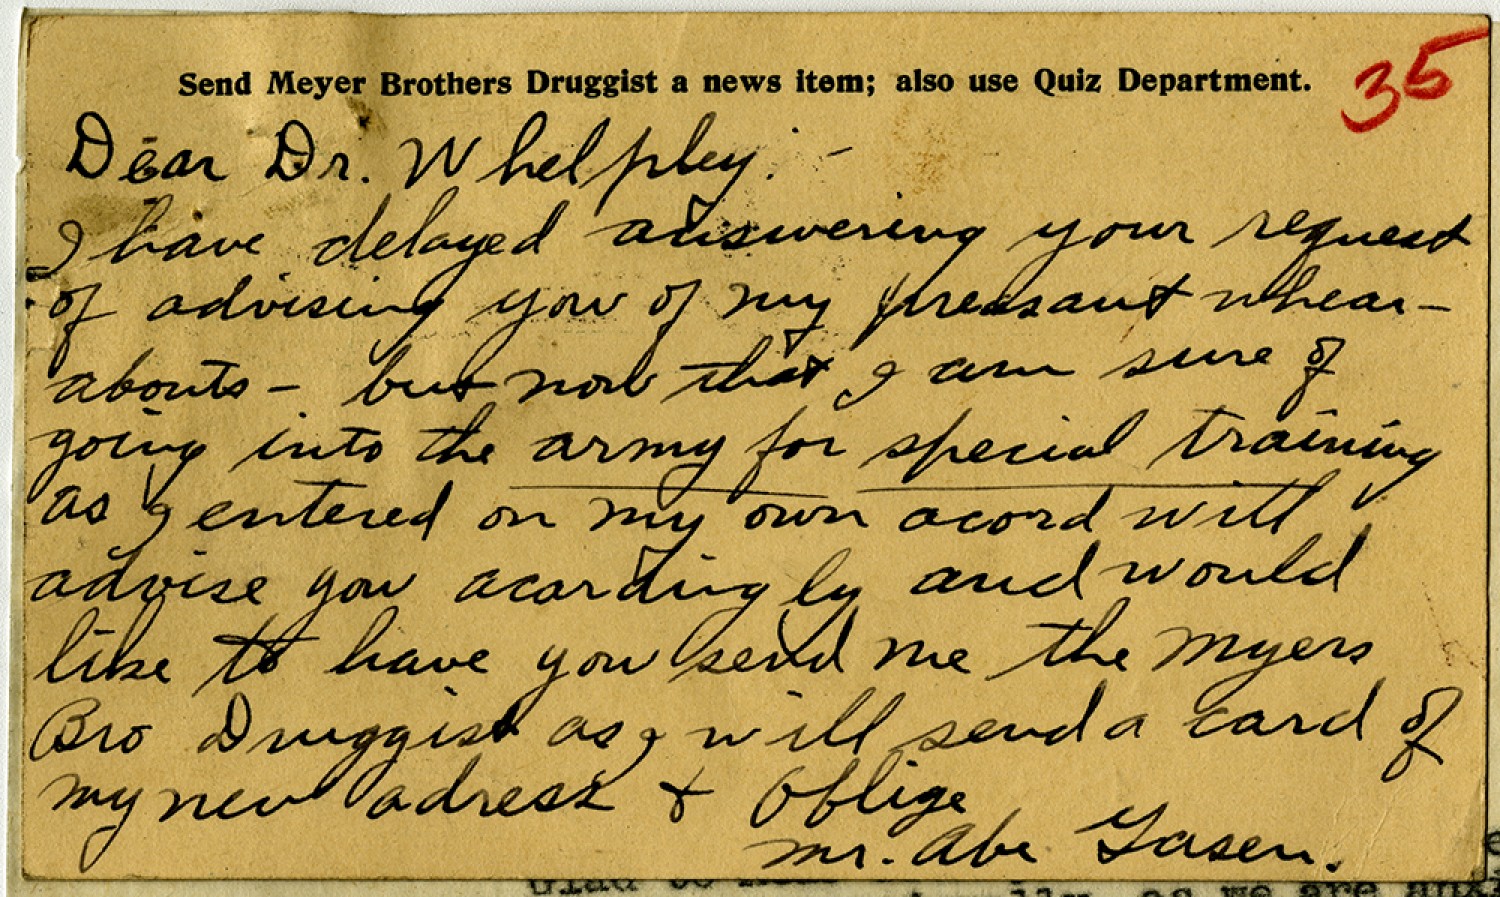 Send Meyer Brothers Druggist a news item; also use Quiz Department.
35
Dear Dr. Whelpley: -
I have delayed answering your request
of advising you of my preasant whear-
abouts - but now that I am sure of
going into the army for special training
as I entered on my own acord will
advise you acordingly and would
like to have you send me the Myers
Bro Druggist as I will send a card of
my new adress & Oblige
Mr. Abe Gasen.